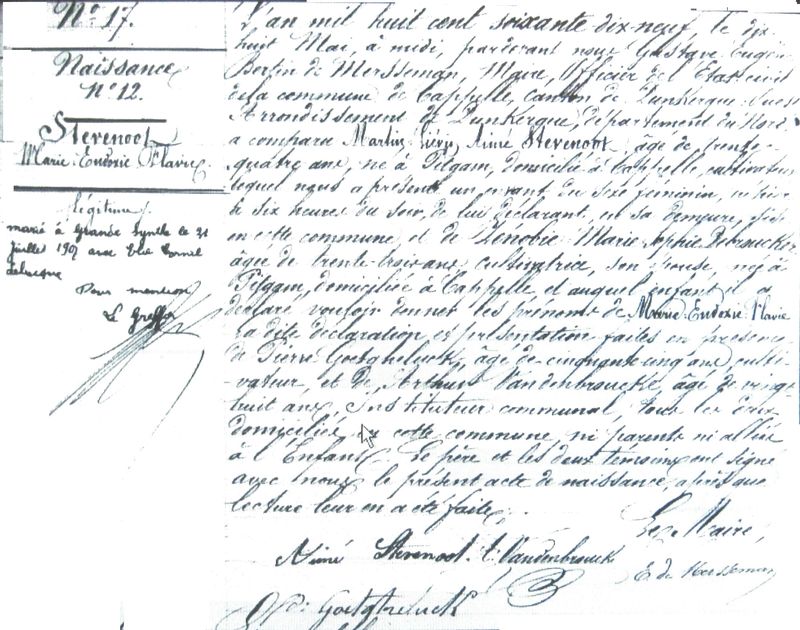 N° 17.
Naissance
N° 12.
Stevenoot
Marie Eudoxie Flavie
légitime
marié à Grande Synthe le 31
juillet 190 avec Elie Cornil
Pour mention
Le Greffier
L'an mil huit cent soixante dix-neuf, le dix
huit Mai, à midi, pardevant nous Gustave Eugène
Bertin de Mersseman, Maire, Officier de l'Etat civil
de la commune de Cappelle, canton de Dunkerque Ouest
Arrondissement de Dunkerque, département du Nord
a comparu Martin Aimé Stevenoot, âgé de trente-
quatre ans, né à Pitgam, domicilié à Cappelle, cultivateur
lequel nous a présenté un enfant du sexe féminin, né hier
à six heures du soir, de lui déclarant, en sa demeure, sise
en cette commune, et de Zénobie Marie Sophie Debraucker
âgée de trente-trois ans, cultivatrice, son épouse, née à
Pitgam, domiciliée à Cappelle et auquel enfant il a
déclaré vouloir donner les prénoms de Marie Eudoxie Flavie
la dite déclaration et présentation faites en présence
de Pierre Goetgheluck, âgé de cinquante cinq ans, culti-
-vateur, et de Arthur Vandenbroucke, âgé de vingt
huit ans, Instituteur communal, tous les deux
domiciliés en cette commune, ni parents ni alliés
à l'Enfant. Le père et les deux témoins ont signé
avec nous le présent acte de naissance, après que
lecture leur en a été faite.
Le Maire,
Aimé Stevenoot Vandenbroucke
E. de Mersseman
Goetgheluck